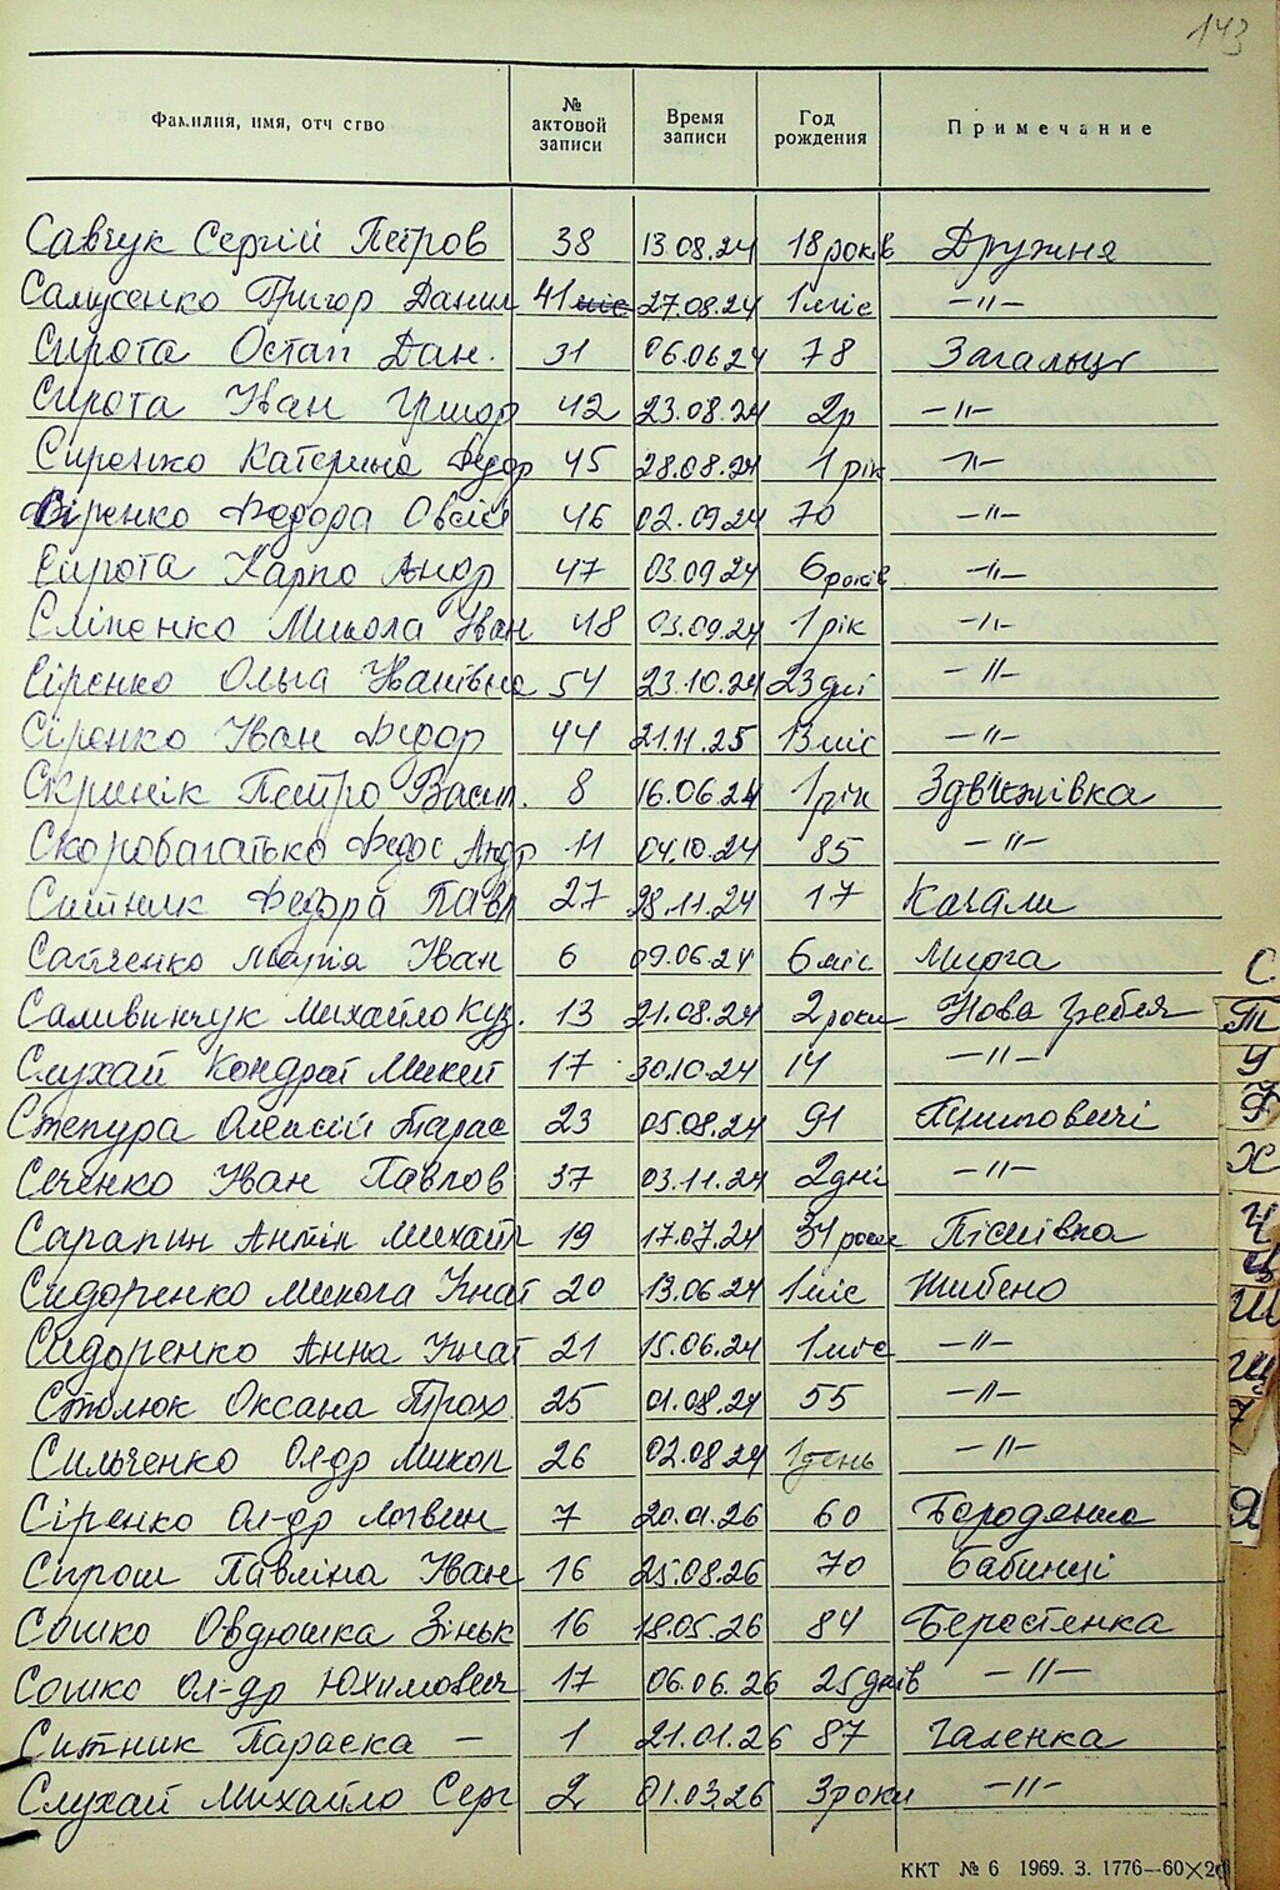 143
Фамилия, имя, отчество № актовой записи Время записи Год рождения Примечание
Савчук Сергій Петров 38 13.08.24 18 років Дружня
Самусенко Григор Данил 41 27.08.24 1 міс -"-
Сирота Остап Дан. 31 06.06.24 78 Загальці
Сирота Іван Григор 42 23.08.24 2р -"-
Сиренко Катерина Федор 45 28.08.24 1 рік -"-
Сіренко Федора Овсій 46 02.09.24 70 -"-
Сирота Карпо Андр 47 03.09.24 6 років -"-
Сліпенко Микола Іван 48 03.09.24 1 рік -"-
Сіренко Ольга Іванівна 54 23.10.24 23 дні -"-
Сіренко Іван Федор 44 21.11.25 13 міс -"-
Скринік Петро Васил. 8 16.06.24 1 рік Здвижівка
Скоробагатько Федос Андр 11 04.10.24 85 -"-
Ситник Федора Павл 27 28.11.24 17 Качали
Сатченко Марія Іван 6 09.06.24 6 міс Мирча
Саливинчук Михайло Куз. 13 21.08.24 2 роки Нова Гребля
Слухай Кондрат Микит 17 30.10.24 14 -"-
Степура Олексій Тарас 23 05.08.24 91
Сеченко Іван Павлов 37 03.11.24 2 дні -"-
Сарапин Антін Михайл 19 17.07.24 34 роки Пісківка
Сидоренко Микола Ігнат 20 13.06.24 1 міс Шибено
Сидоренко Анна Ігнат 21 15.06.24 1 міс -"-
Столюк Оксана Прох 25 01.08.24 55 -"-
Сильченко Ол-др Микол 26 02.08.24 1 день -"-
Сіренко Ол-др Логвин 7 20.01.26 60 Бородянка
Сирош Павліна Іван 16 25.08.26 70 Бабинці
Сошко Овдюшка Зіньк 16 18.05.26 84 Берестянка
Сошко Ол-др Юхимович 17 06.06.26 25 днів -"-
Ситник Параска - 1 21.01.26 87 Галенка
Слухай Михайло Серг 2 01.03.26 3 роки -"-
С
Т
У
Ф
Х
Ч
Ц
Ш
Щ
Я
ККТ № 6 1969. З. 1776—60×20